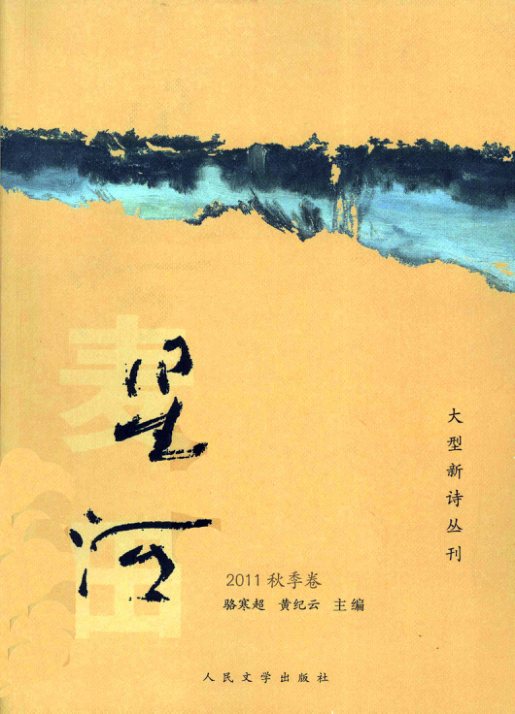 星
河
大型新诗丛刊
2011 秋季卷
骆寒超 黄纪云 主编
人民文学出版社